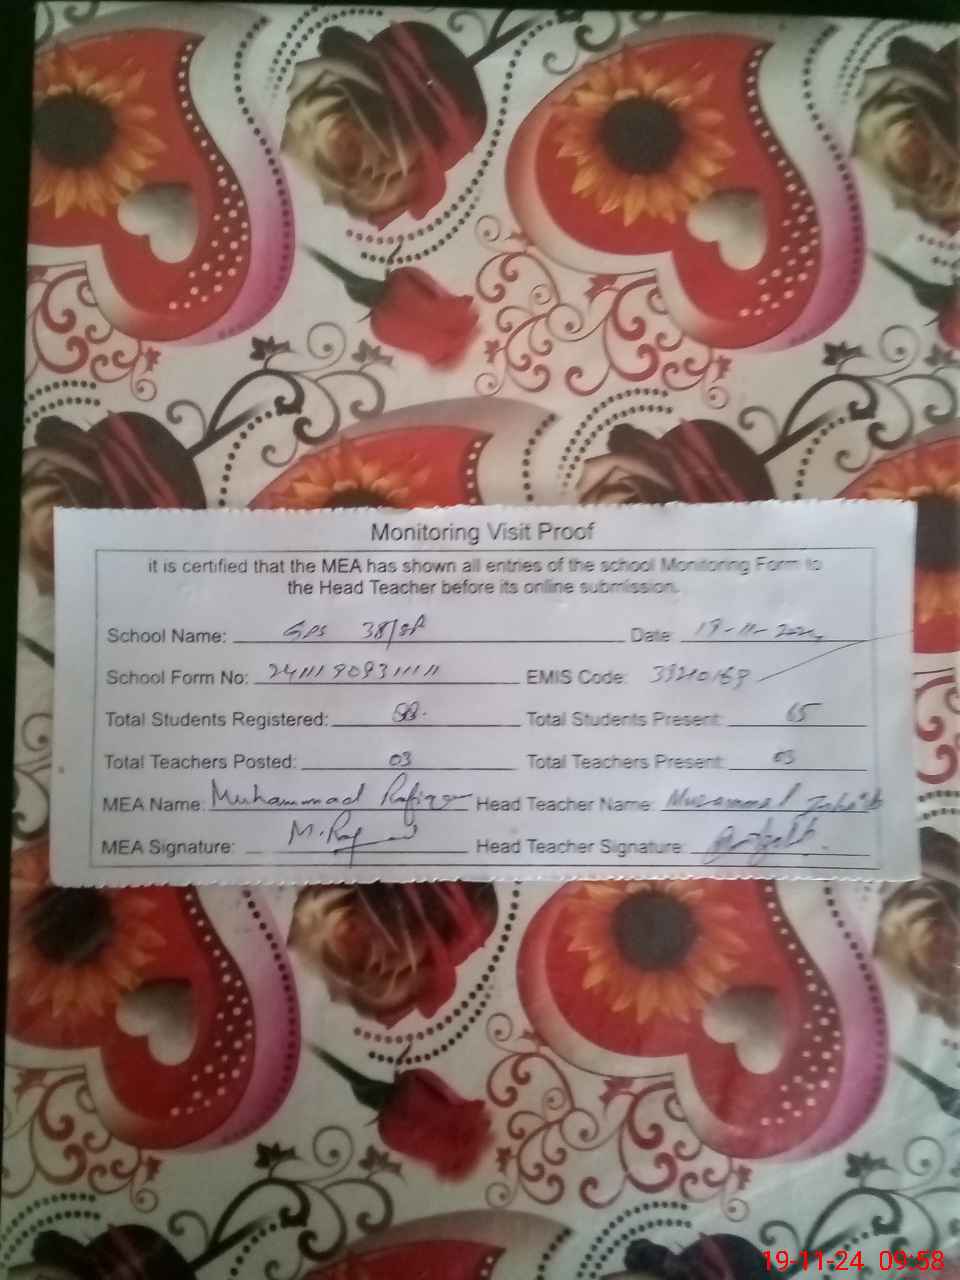 Monitoring Visit Proof
it is certified that the MEA has shown all entries of the school Monitoring Form to
the Head Teacher before its online submission.
School Name: GPS 38/SP Date: 19-11-2024
School Form No: EMIS Code:
Total Students Registered: Total Students Present: 65
Total Teachers Posted: 03 Total Teachers Present: 03
MEA Name: Muhammad Rafique Head Teacher Name:
MEA Signature: Head Teacher Signature:
19-11-24 09:58